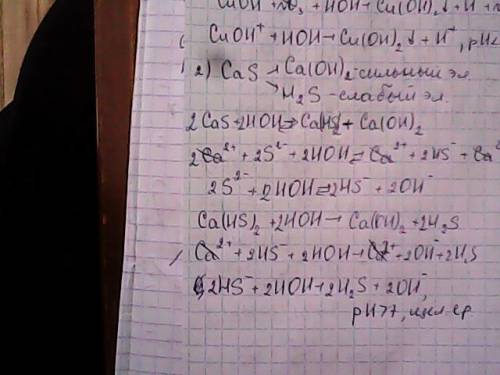 CuOH + NO₃ + HOH → Cu(OH)₂↓ + H
CuOH⁺ + HOH → Cu(OH)₂↓ + H⁺, pH<
2) CaS Ca(OH)₂ - сильный эл.
H₂S - слабый эл.
2CaS + 2HOH ⇄ Ca(HS)₂ + Ca(OH)₂
2Ca²⁺ + 2S²⁻ + 2HOH ⇄ Ca²⁺ + 2HS⁻ + Ca²
2S²⁻ + 2HOH ⇄ 2HS⁻ + 2OH⁻
Ca(HS)₂ + 2HOH → Ca(OH)₂ + 2H₂S
Ca²⁺ + 2HS⁻ + 2HOH → Ca²⁺ + 2OH⁻ + 2H₂S
2HS⁻ + 2HOH → 2H₂S + 2OH⁻,
pH>7, щел. ср.